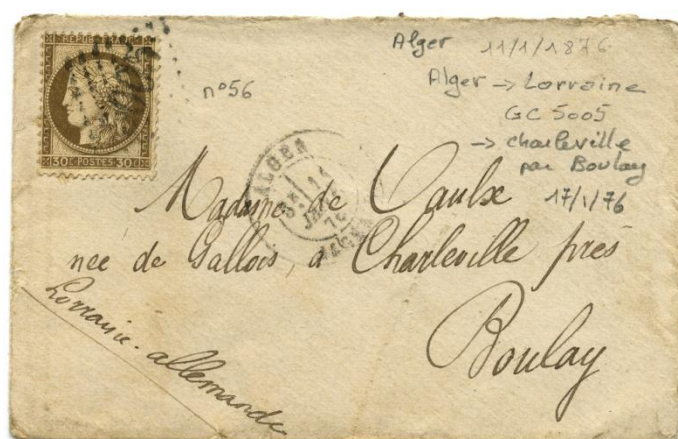 REPUB. FRANC.
30 C. POSTES 30 C.
n°56
Alger 11/1/1876
Alger → Lorraine
GC 5005
→ Charleville
par Boulay
17/1/76
ALGER
Madame de Vaulx
nee de Gallois, a Charleville près
Boulay
Lorraine-allemande